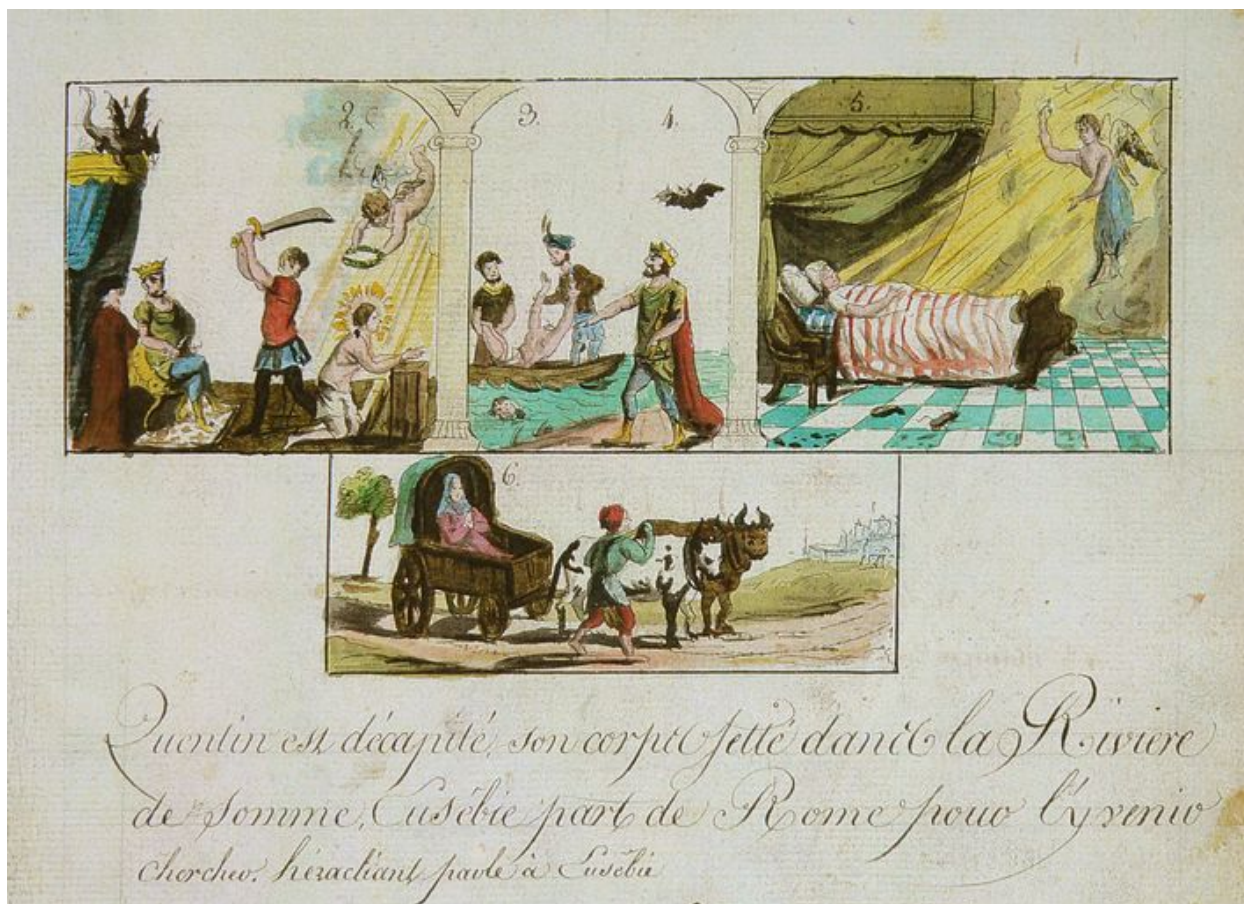 2.
3.
4.
5.
6.
Quentin est décapité, son corps jetté dans la Riviere
de Somme, Eusébie part de Rome pour l'y venir
chercher. héraclians parle à Eusébie